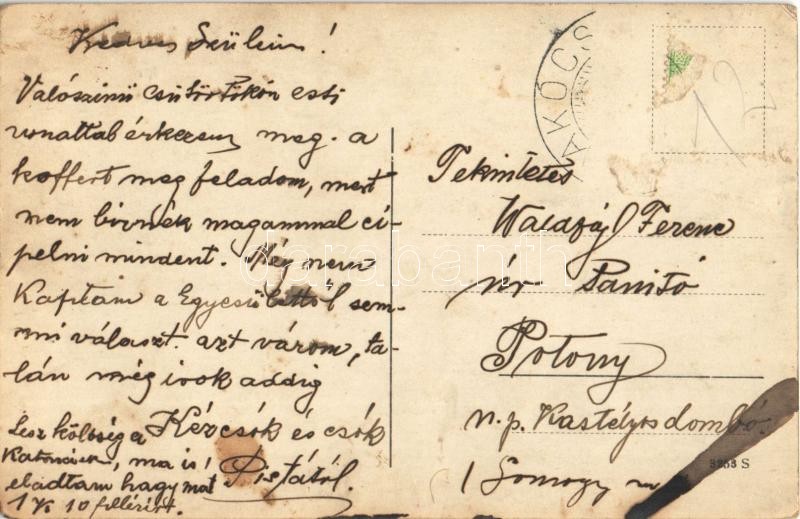 Kedves Szüleim!
Valószinü csütörtökön esti
vonattal érkezem meg. a
koffert meg feladom, mert
nem birnék magammal ci-
pelni mindent. Még nem
Kaptam a Egyesülettöl sem-
mi választ. azt várom, ta-
lán még irok addig
Kézcsók és csók
Pistától.
Lesz költsége a
Katonának, ma is
eladtam hagymát
1 K 10 fillérért.
LAKÓCSA
12
Tekintetes
Waldfájl Ferenc
úr Tanitó
Potony
n. p. Kastélyosdombó
Somogy m
3253 S
darabanth